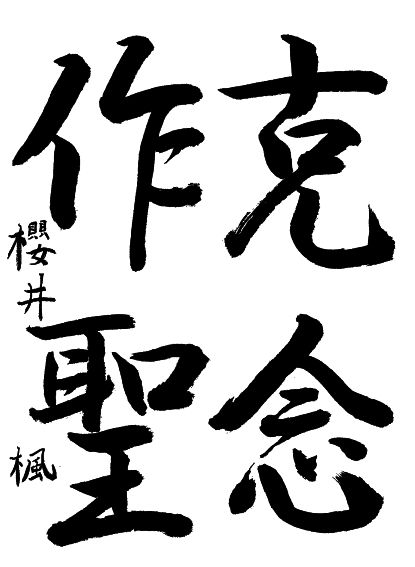 克念
作聖
櫻井楓